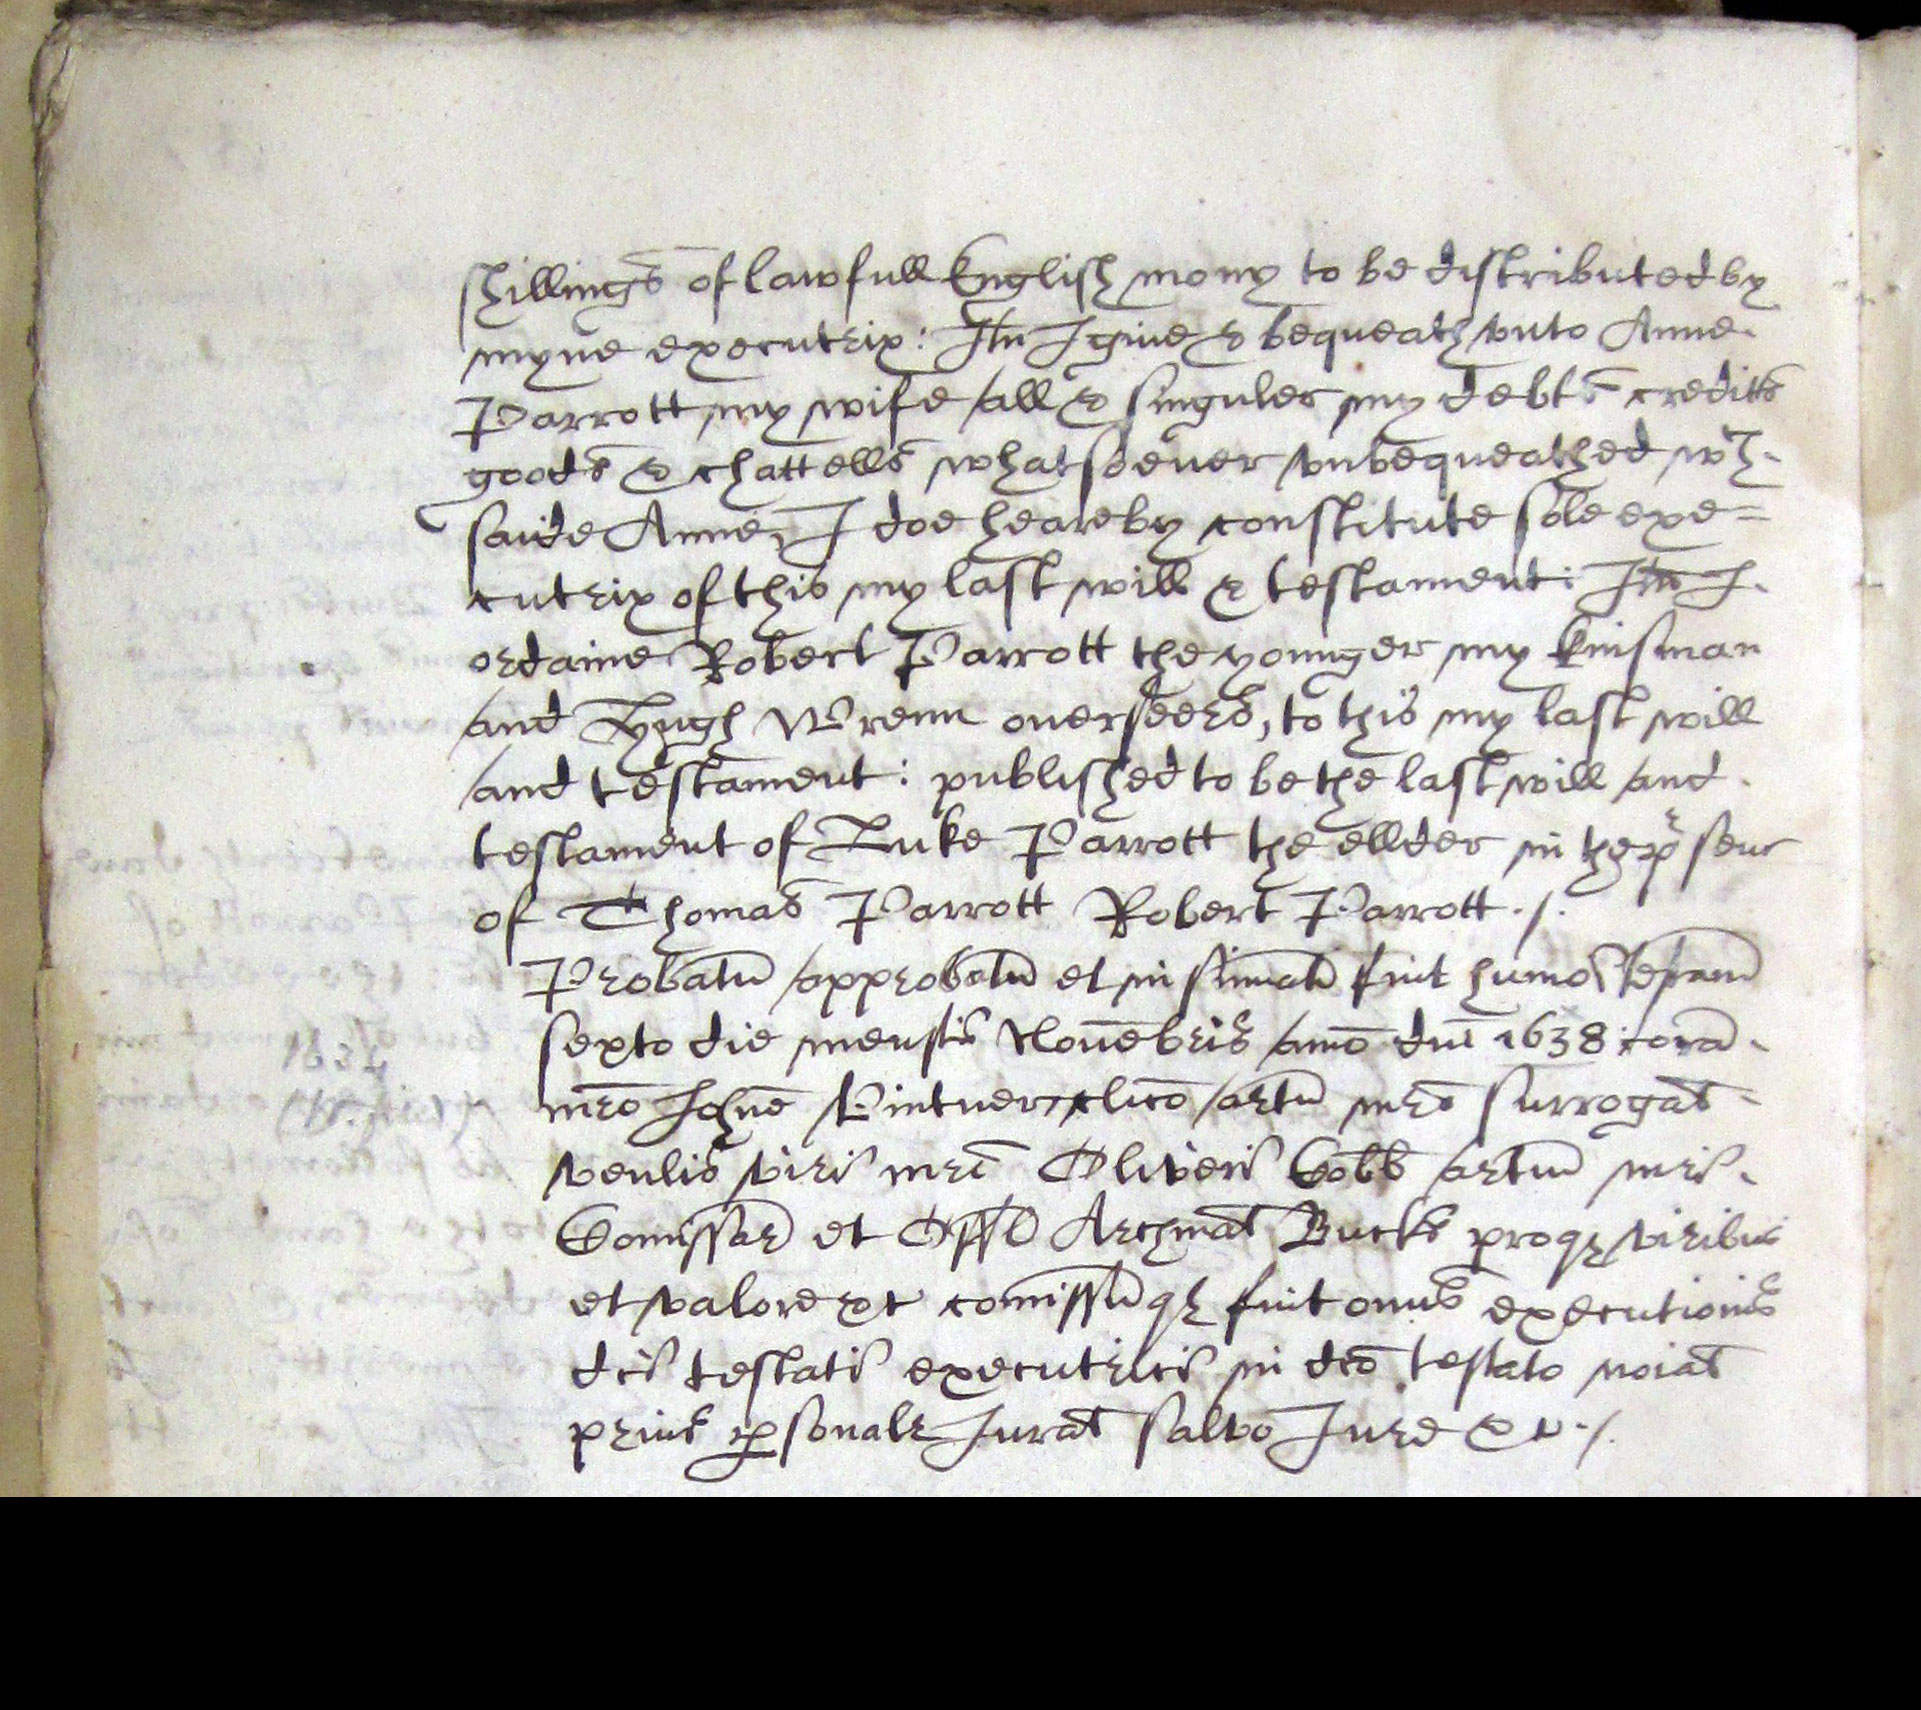 shillings of lawfull English mony to be distributed by
myne executrix: Itm I giue & bequeath vnto Anne
Parrott my wife all & singuler my debts credits
goods & chattells whatsoeuer vnbequeathed wch
saide Anne, I doe heareby constitute sole exe=
cutrix of this my last will & testament: Itm I
ordaine Robert Parrott the younger my kinsman
and Hugh Wrenn ouerseers, to this my last will
and testament: published to be the last will and
testament of Luke Parrott the ellder in the psenc
of Thomas Parrott Robert Parrott ./.
Probatu approbatu et insinuatu fuit humoi testam
sexto die mensis Nouebris anno dni 1638 cora
mro Johne Vintner clico artu mro surrogat
venlis viri mri Oliveri Cobb artiu mri
Comissar et Offi Archinat Bucks pro qr viribus
et valore &c comissuqz fuit onus executionis
dci testati executrici in dco testato noiat
prius psonalr Jurat salvo Jure &c ./.
1634